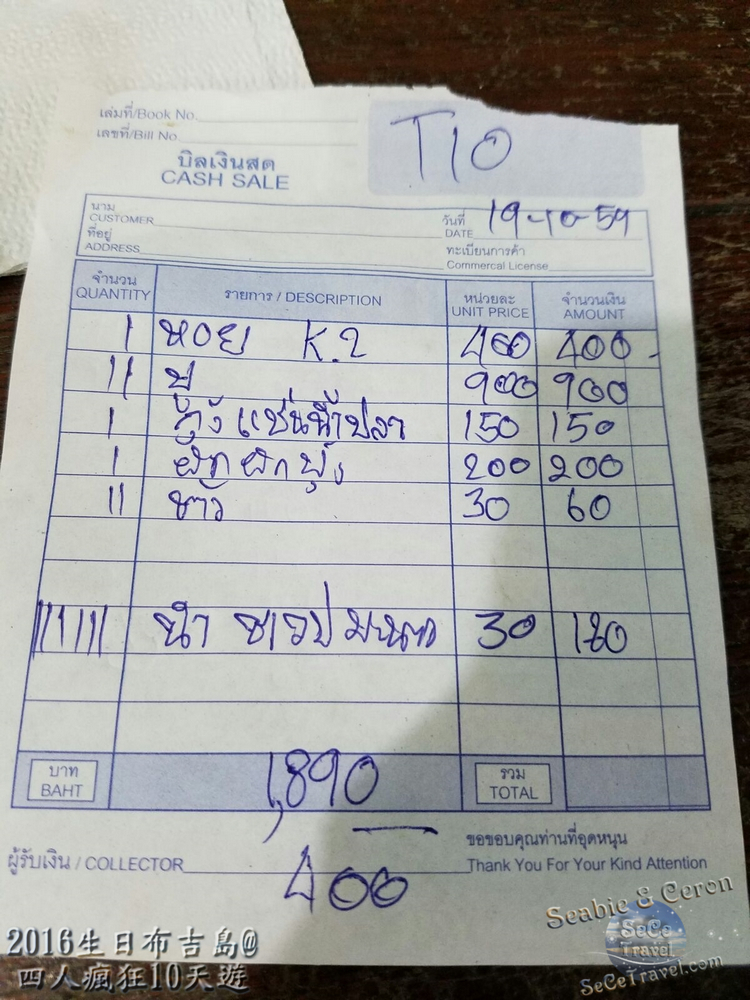 เล่มที่/Book No.
เลขที่/Bill No.
T10
บิลเงินสด
CASH SALE
นาม
CUSTOMER
วันที่
DATE 19-10-59
ที่อยู่
ADDRESS
ทะเบียนการค้า
Commercal License
จำนวน QUANTITY รายการ / DESCRIPTION หน่วยละ UNIT PRICE จำนวนเงิน AMOUNT
I หอย K.2 400 400.-
II ปู 900 900
I กุ้งแช่น้ำปลา 150 150
I ผัดผักบุ้ง 200 200
II ข้าว 30 60
น้ำ 30 180
บาท
BAHT
1,890
รวม
TOTAL
ขอขอบคุณท่านที่อุดหนุน
ผู้รับเงิน / COLLECTOR
Thank You For Your Kind Attention
400
Seabie & Ceron
SeCe
Travel
SeCeTravel.com
2016生日布吉島@
四人瘋狂10天遊